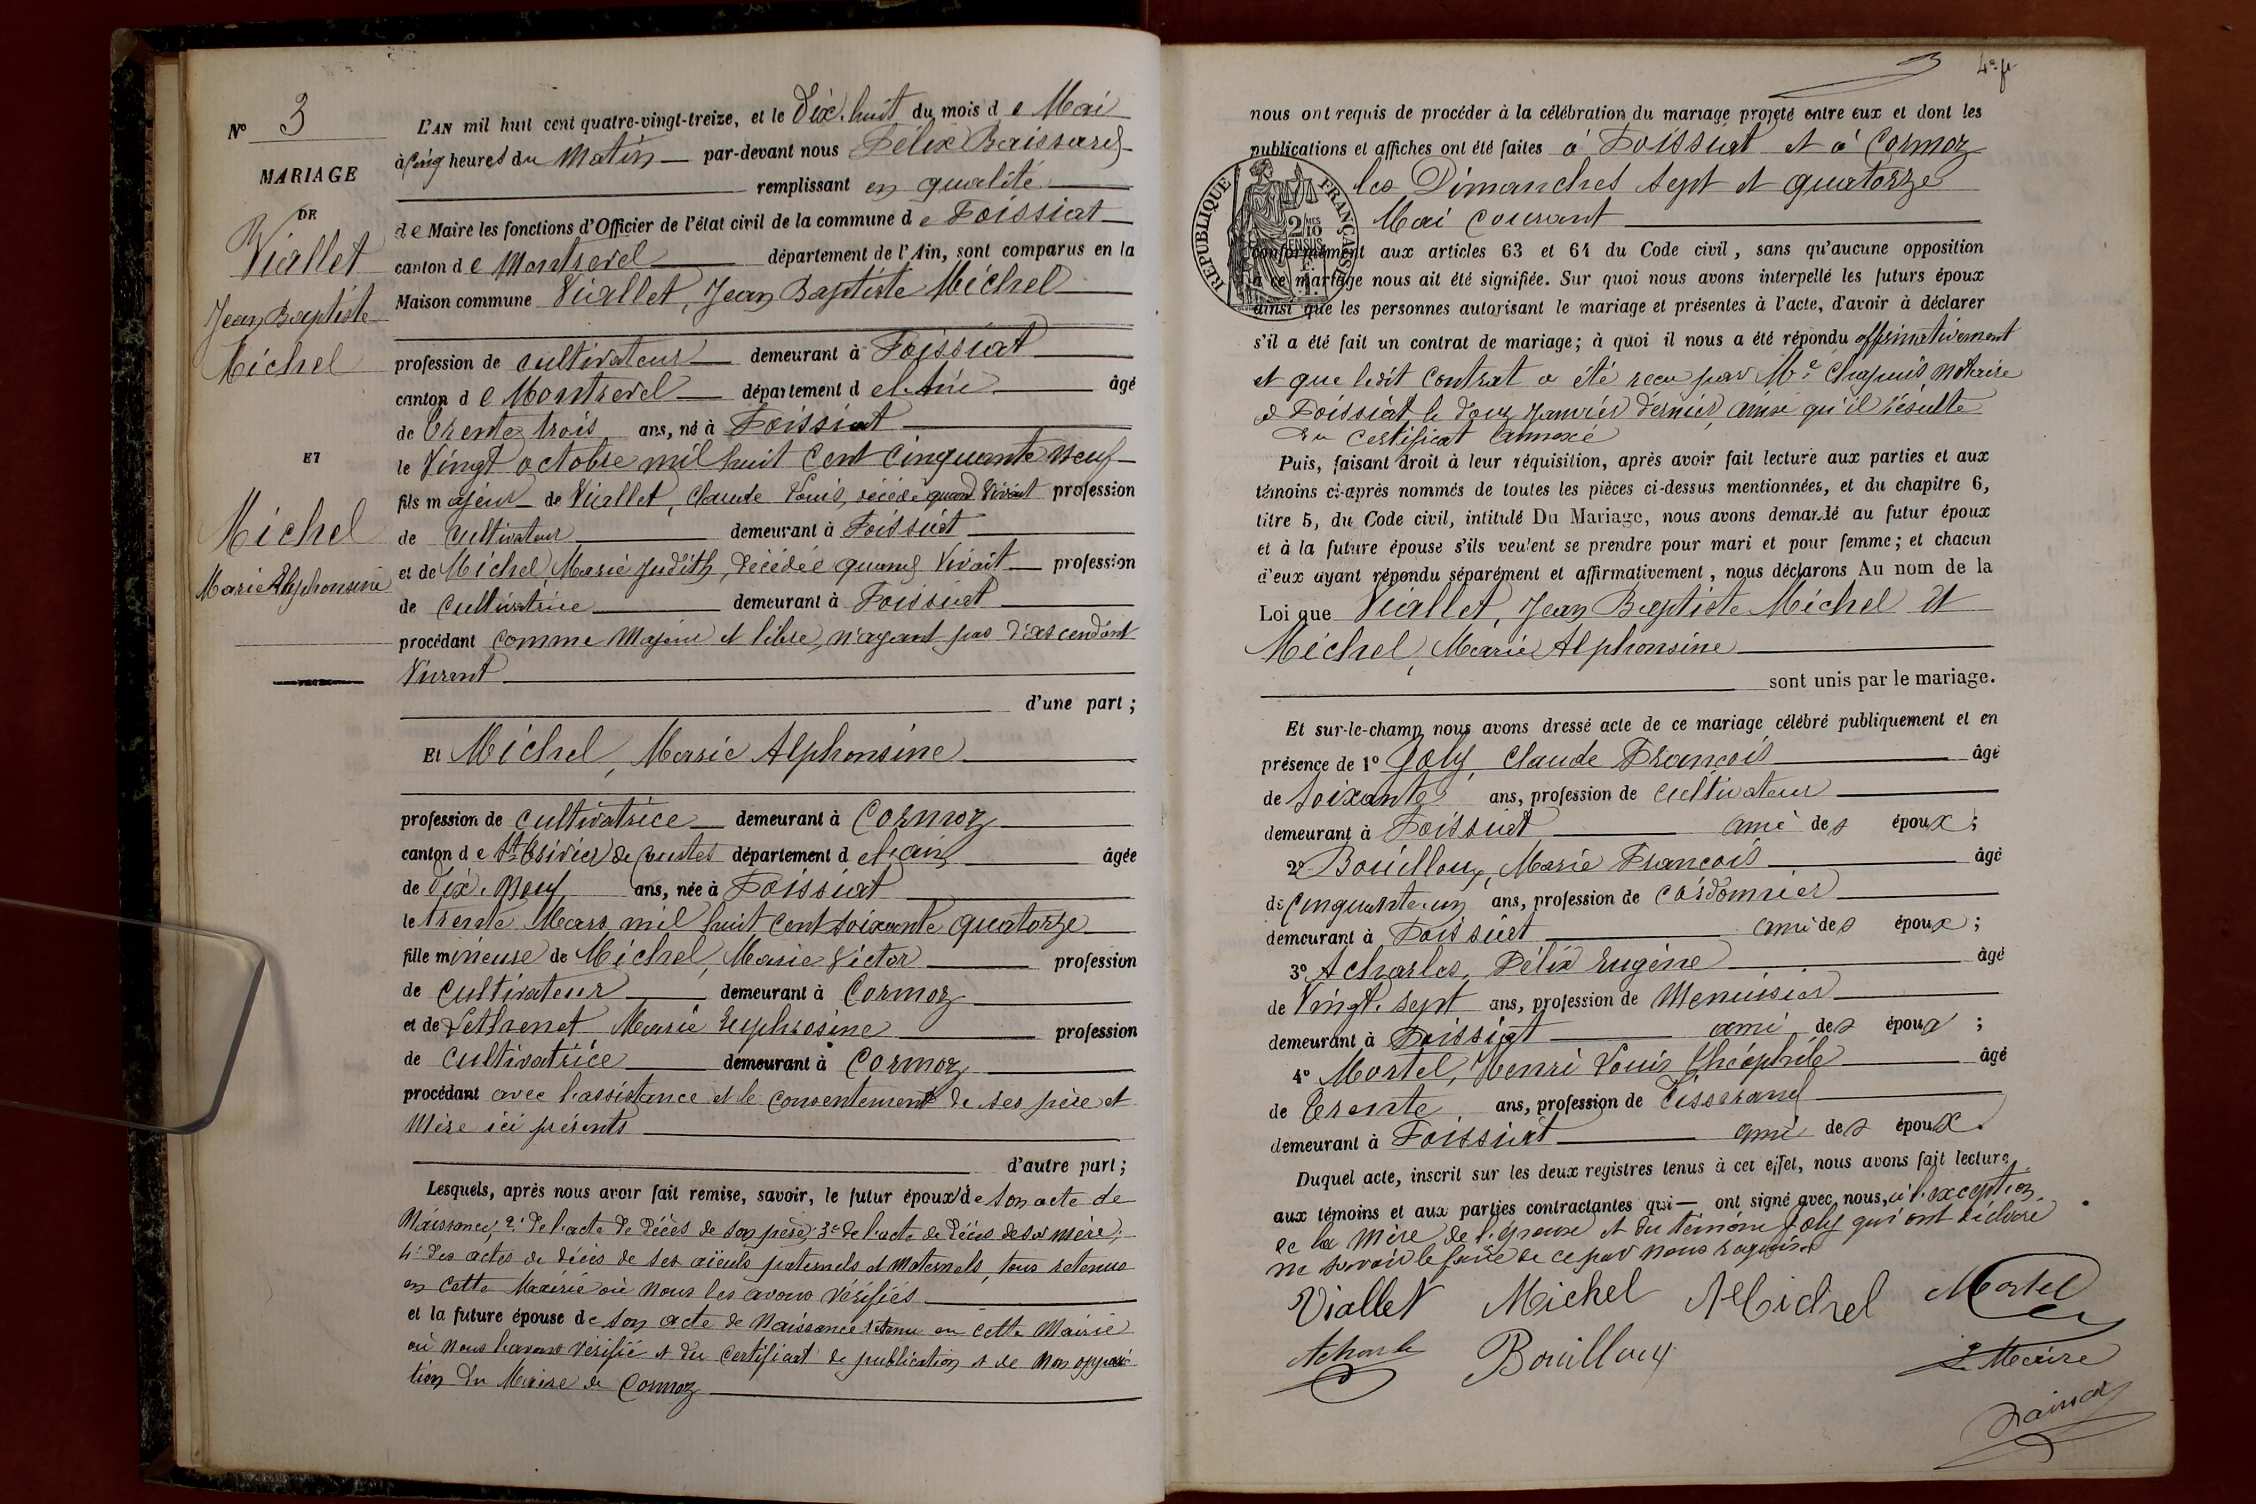 N° 3
MARIAGE
DE
Viallet
Jean Baptiste
Michel
ET
Michel
Marie Alphonsine
L'AN mil huit cent quatre-vingt-treize, et le Dix-huit du mois de Mai
à Cinq heures du Matin par-devant nous Félix Baissard
remplissant en qualité
de Maire les fonctions d'Officier de l'état civil de la commune de Foissiat
canton de Montrevel département de l'Ain, sont comparus en la
Maison commune Viallet, Jean Baptiste Michel
profession de cultivateur demeurant à Foissiat
canton de Montrevel département de l'Ain âgé
de Trente trois ans, né à Foissiat
le Vingt octobre mil huit Cent Cinquante Neuf
fils majeur de Viallet, Claude Louis, décédé quand Vivait profession
de Cultivateur demeurant à Foissiat
et de Michel, Marie Judith, décédée quand Vivait profession
de Cultivatrice demeurant à Foissiat
procédant comme Majeur et libre, n'ayant pas d'ascendant
Vivant
d'une part;
Et Michel, Marie Alphonsine
profession de cultivatrice demeurant à Cormoz
canton de St Trivier de Courtes département de l'ain âgée
de Dix-Neuf ans, née à Foissiat
le trente Mars mil huit Cent soixante quatorze
fille mineuse de Michel, Marie Victor profession
de Cultivateur demeurant à Cormoz
et de Pethrenet Marie Euphrosine profession
de Cultivatrice demeurant à Cormoz
procédant avec l'assistance et le Consentement de ses père et
Mère ici présents
d'autre part;
Lesquels, après nous avoir fait remise, savoir, le futur époux de son acte de
Naissance, 2° de l'acte de décès de son père, 3° de l'acte de décès de sa mère,
4° des actes de décès de ses aïeuls paternels et Maternels, tous retenus
en cette Mairie où nous les avons Vérifiés
et la future épouse de son acte de Naissance retenu en cette Mairie
où Nous l'avons Vérifié et du Certificat de publication et de Non opposi
tion du Maire de Cormoz
3
nous ont requis de procéder à la célébration du mariage projeté entre eux et dont les
publications et affiches ont été faites à Foissiat et à Cormoz
les Dimanches sept et quatorze
Mai Courant
RÉPUBLIQUE FRANÇAISE
2/10 MES EN SUS
conformément aux articles 63 et 64 du Code civil, sans qu'aucune opposition
à ce mariage nous ait été signifiée. Sur quoi nous avons interpellé les futurs époux
ainsi que les personnes autorisant le mariage et présentes à l'acte, d'avoir à déclarer
s'il a été fait un contrat de mariage; à quoi il nous a été répondu affirmativement
et que ledit Contrat a été reçu par Me Chapuis Notaire
à Foissiat le Janvier dernier, ainsi qu'il résulte
du Certificat annexé
Puis, faisant droit à leur réquisition, après avoir fait lecture aux parties et aux
témoins ci-après nommés de toutes les pièces ci-dessus mentionnées, et du chapitre 6,
titre 5, du Code civil, intitulé Du Mariage, nous avons demandé au futur époux
et à la future épouse s'ils veulent se prendre pour mari et pour femme; et chacun
d'eux ayant répondu séparément et affirmativement, nous déclarons Au nom de la
Loi que Viallet, Jean Baptiste Michel et
Michel, Marie Alphonsine
sont unis par le mariage.
Et sur-le-champ nous avons dressé acte de ce mariage célébré publiquement et en
présence de 1° Joly, Claude François âgé
de soixante ans, profession de Cultivateur
demeurant à Foissiat ami des époux;
2° Bouilloux, Marie François âgé
de Cinquante un ans, profession de Cordonnier
demeurant à Foissiat ami des époux;
3° Acharles, Félix Eugène âgé
de Vingt-sept ans, profession de Menuisier
demeurant à Foissiat ami des époux;
4° Mortel, Henri Louis Théophile âgé
de Trente ans, profession de Tisserand
demeurant à Foissiat ami des époux.
Duquel acte, inscrit sur les deux registres tenus à cet effet, nous avons fait lecture
aux témoins et aux parties contractantes qui ont signé avec nous, à l'exception
de la Mère de l'épouse et du témoin Joly qui ont déclaré
ne savoir le faire de ce par Nous requis
Viallet Michel Michel Mortel
Acharle Bouilloux
Le Maire
Baissard